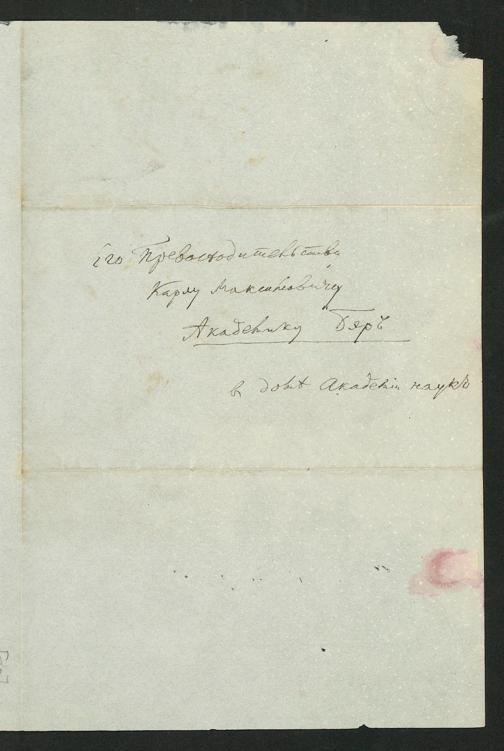 Его Превосходительству
Карлу Максимовичу
Академику Бэръ
в доме Академіи наукъ